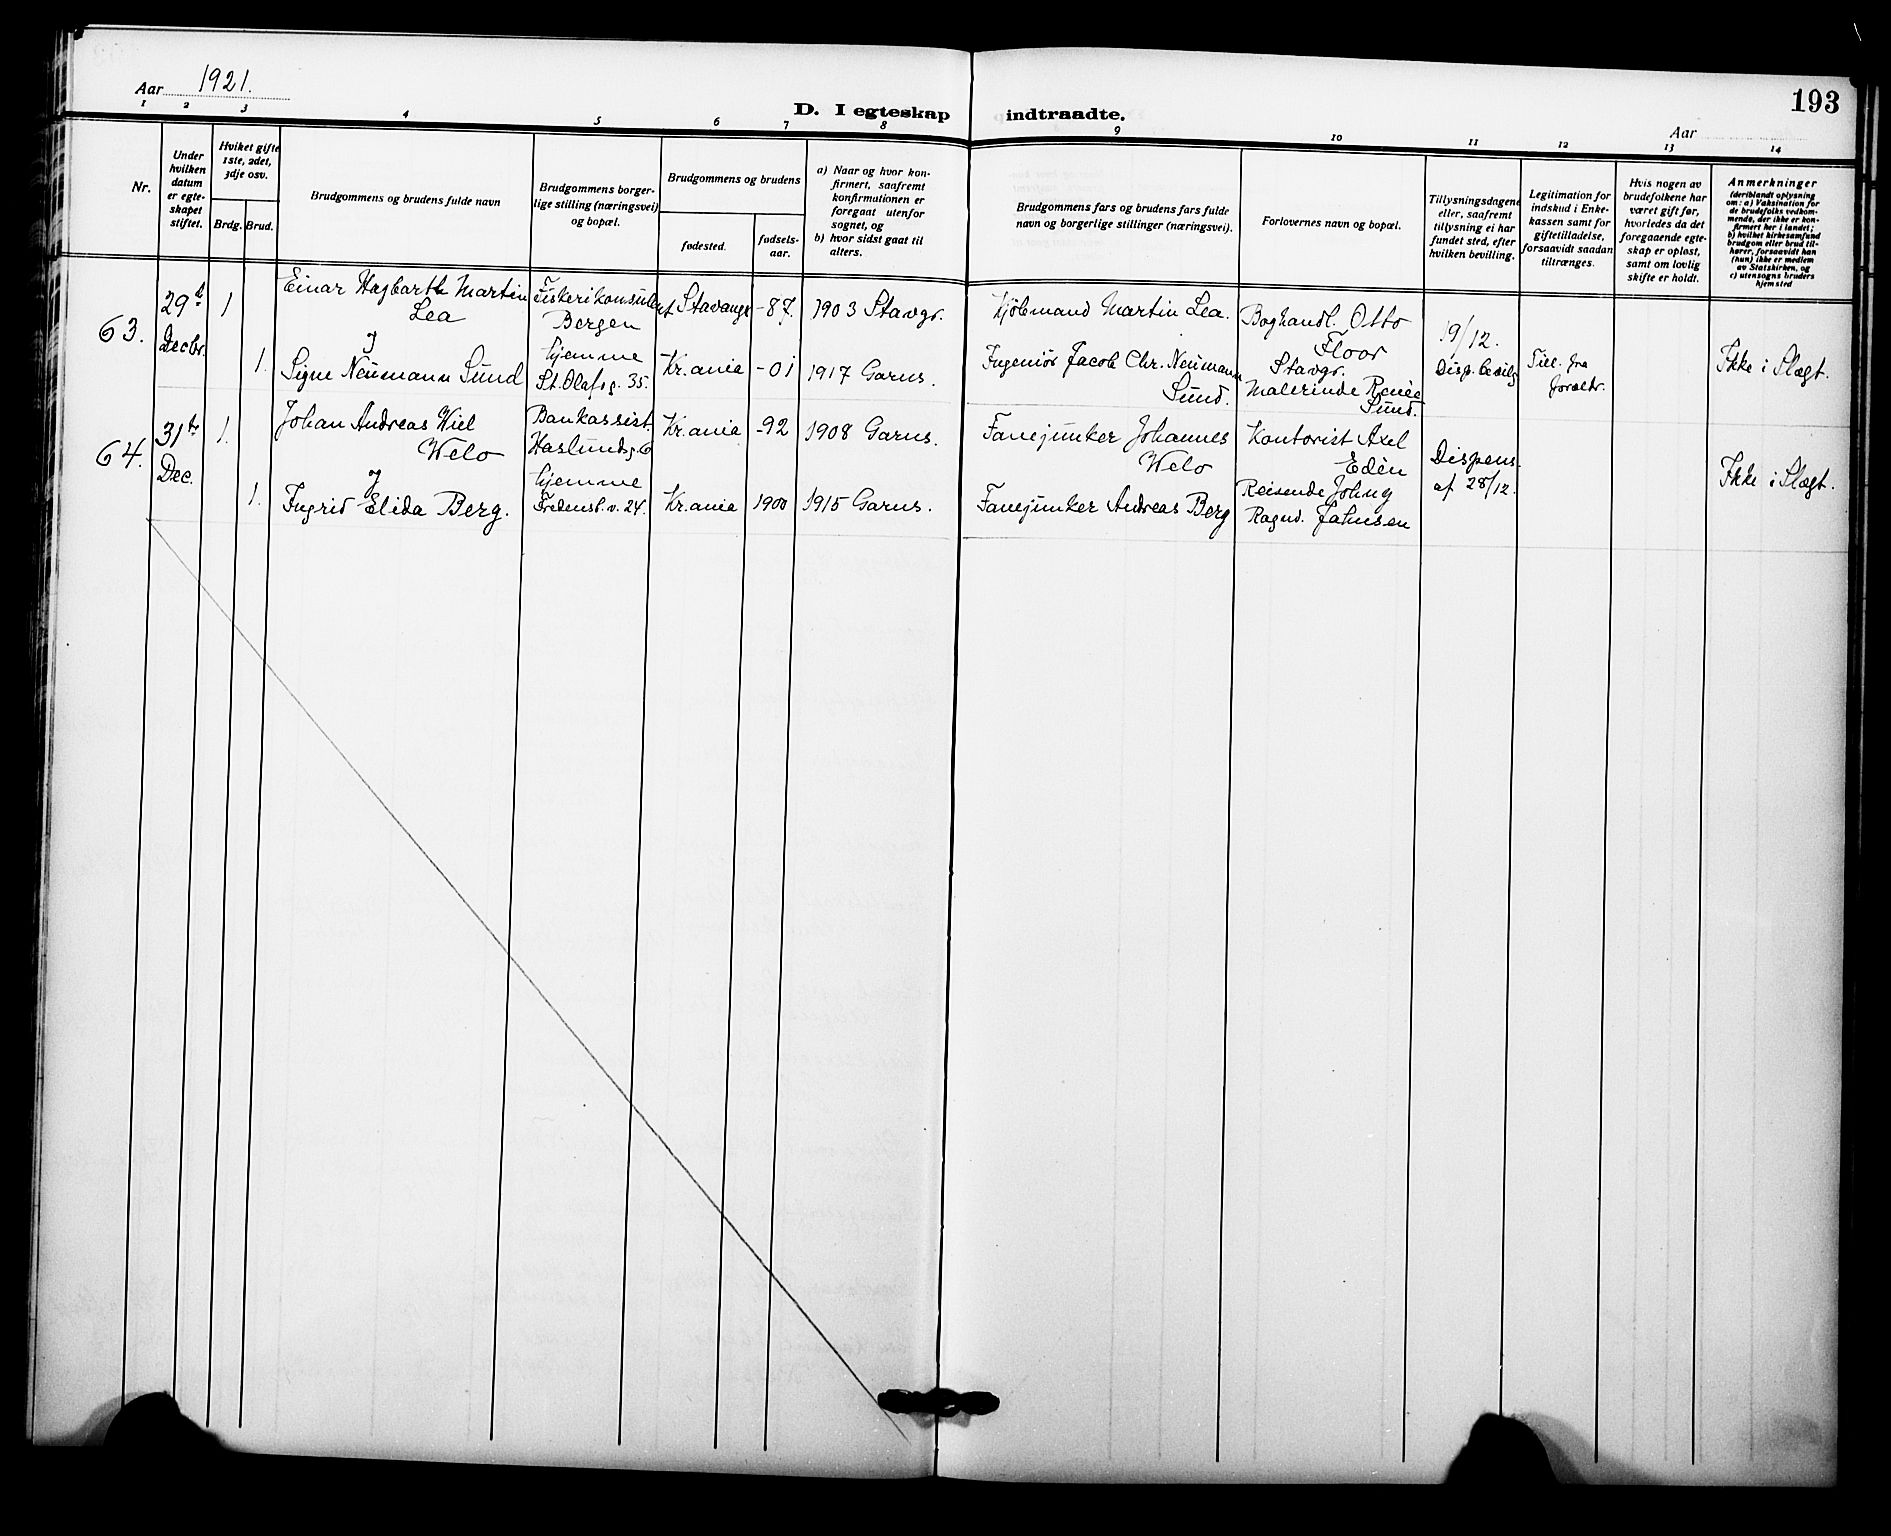 Aar 1921.
D. I egteskap indtraadte.
193
Aar
1 2 3 4 5 6 7 8 9 10 11 12 13 14
Nr.
Under hvilken datum er egteskapet stiftet.
Hvilket gifte 1ste, 2det, 3dje osv.
Brdg. Brud.
Brudgommens og brudens fulde navn
Brudgommens borgerlige stilling (næringsvei) og bopæl.
Brudgommens og brudens
fødested.
fødselsaar.
a) Naar og hvor konfirmert, saafremt konfirmationen er foregaat utenfor sognet, og
b) hvor sidst gaat til alters.
Brudgommens fars og brudens fars fulde navn og borgerlige stillinger (næringsvei).
Forlovernes navn og bopæl.
Tillysningsdagene eller, saafremt tillysning ei har fundet sted, efter hvilken bevilling.
Legitimation for indskud i Enkekassen samt for giftetilladelse, forsaavidt saadan tiltrænges.
Hvis nogen av brudefolkene har været gift før, hvorledes da det foregaaende egteskap er opløst, samt om lovlig skifte er holdt.
Anmerkninger
(deriblandt oplysning om: a) Vaksination for de brudefolks vedkommende, der ikke er konfirmert her i landet; b) hvilket kirkesamfund brudgom eller brud tilhører, forsaavidt han (hun) ikke er medlem av Statskirken, og c) utensogns bruders hjemsted
63.
29d Decbr.
1
Einar Hagbarth Martin Lea
Fiskerikonsulent Bergen
Stavangr
-87.
1903 Stavgr.
Kjöbmand Martin Lea.
Boghandl. Otto Floor Stavgr.
19/12.
Disp. bevilg
Till. fra foreldr.
Ikke i Slægt.
1.
Signe Neumann Sund
hjemme St. Olafs g. 35.
Kr.ania
-01
1917 Garns.
Ingeniör Jacob Chr. Neumann Sund.
Malerinde Renée Sund.
64.
31te Dec.
1.
Johan Andreas Wiel Welo
Bankassist. Haslunds g 6
Kr.ania
-92
1908 Garns.
Fanejunker Johannes Welo
Kontorist Axel Edèn
Dispens. af 28/12.
Ikke i Slægt.
1.
Ingrid Elida Berg.
hjemme Fredensb. v. 24.
Kr.ania
1900
1915 Garns.
Fanejunker Andreas Berg
Reisende Johny Ragnd. Jahnsen